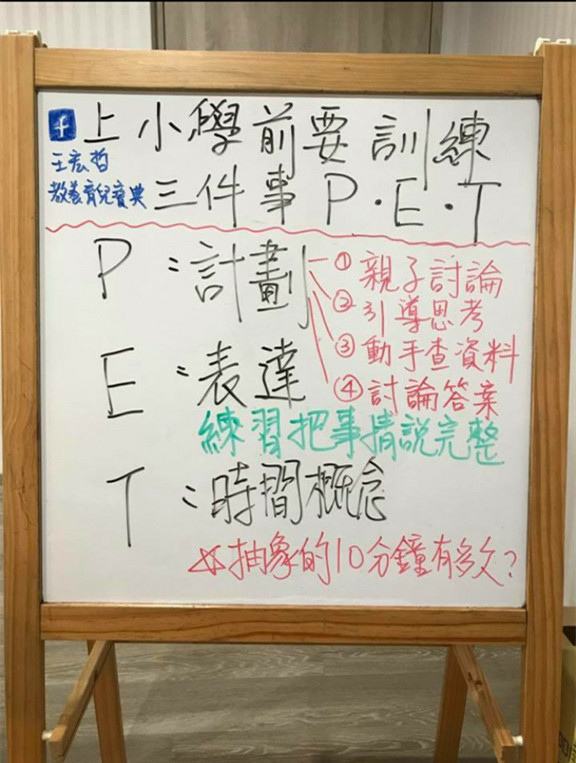 f 上小學前要訓練
王宏哲
教養育兒寶典 三件事 P.E.T
P：計劃 ① 親子討論
② 引導思考
③ 動手查資料
④ 討論答案
E：表達
練習把事情說完整
T：時間概念
☆抽象的10分鐘有多久？